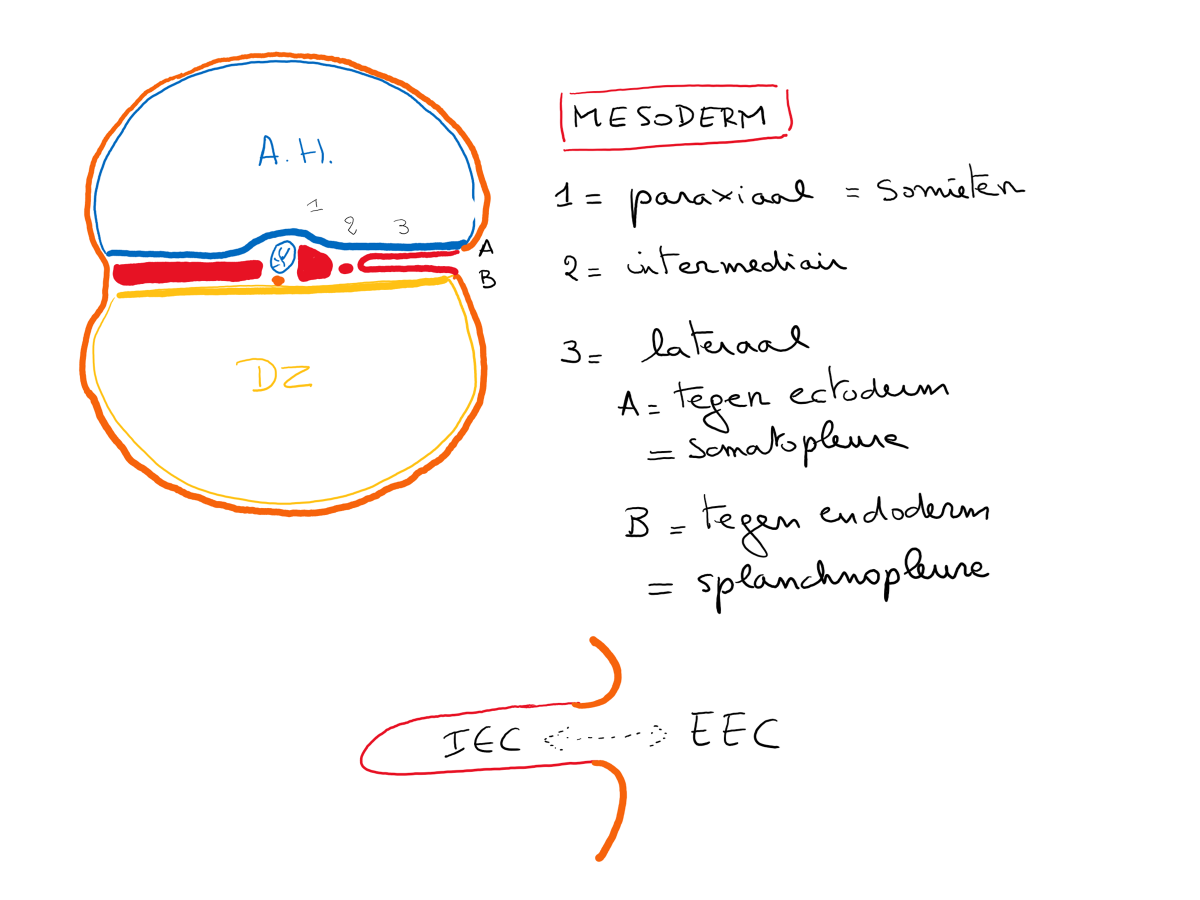 A.H.
1
2
3
A
B
DZ
MESODERM
1 = paraxiaal = Somieten
2 = intermediair
3 = lateraal
A = tegen ectoderm
= somatopleure
B = tegen endoderm
= splanchnopleure
IEC
EEC